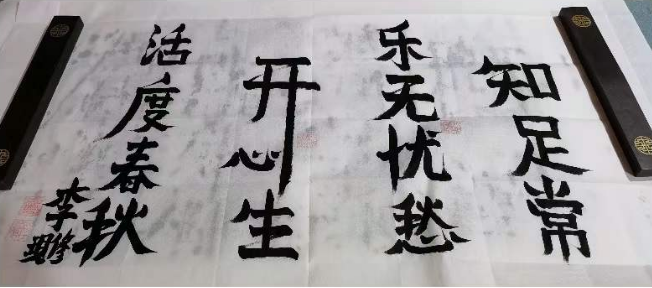 知足常
乐无忧愁
开心生
活度春秋
李